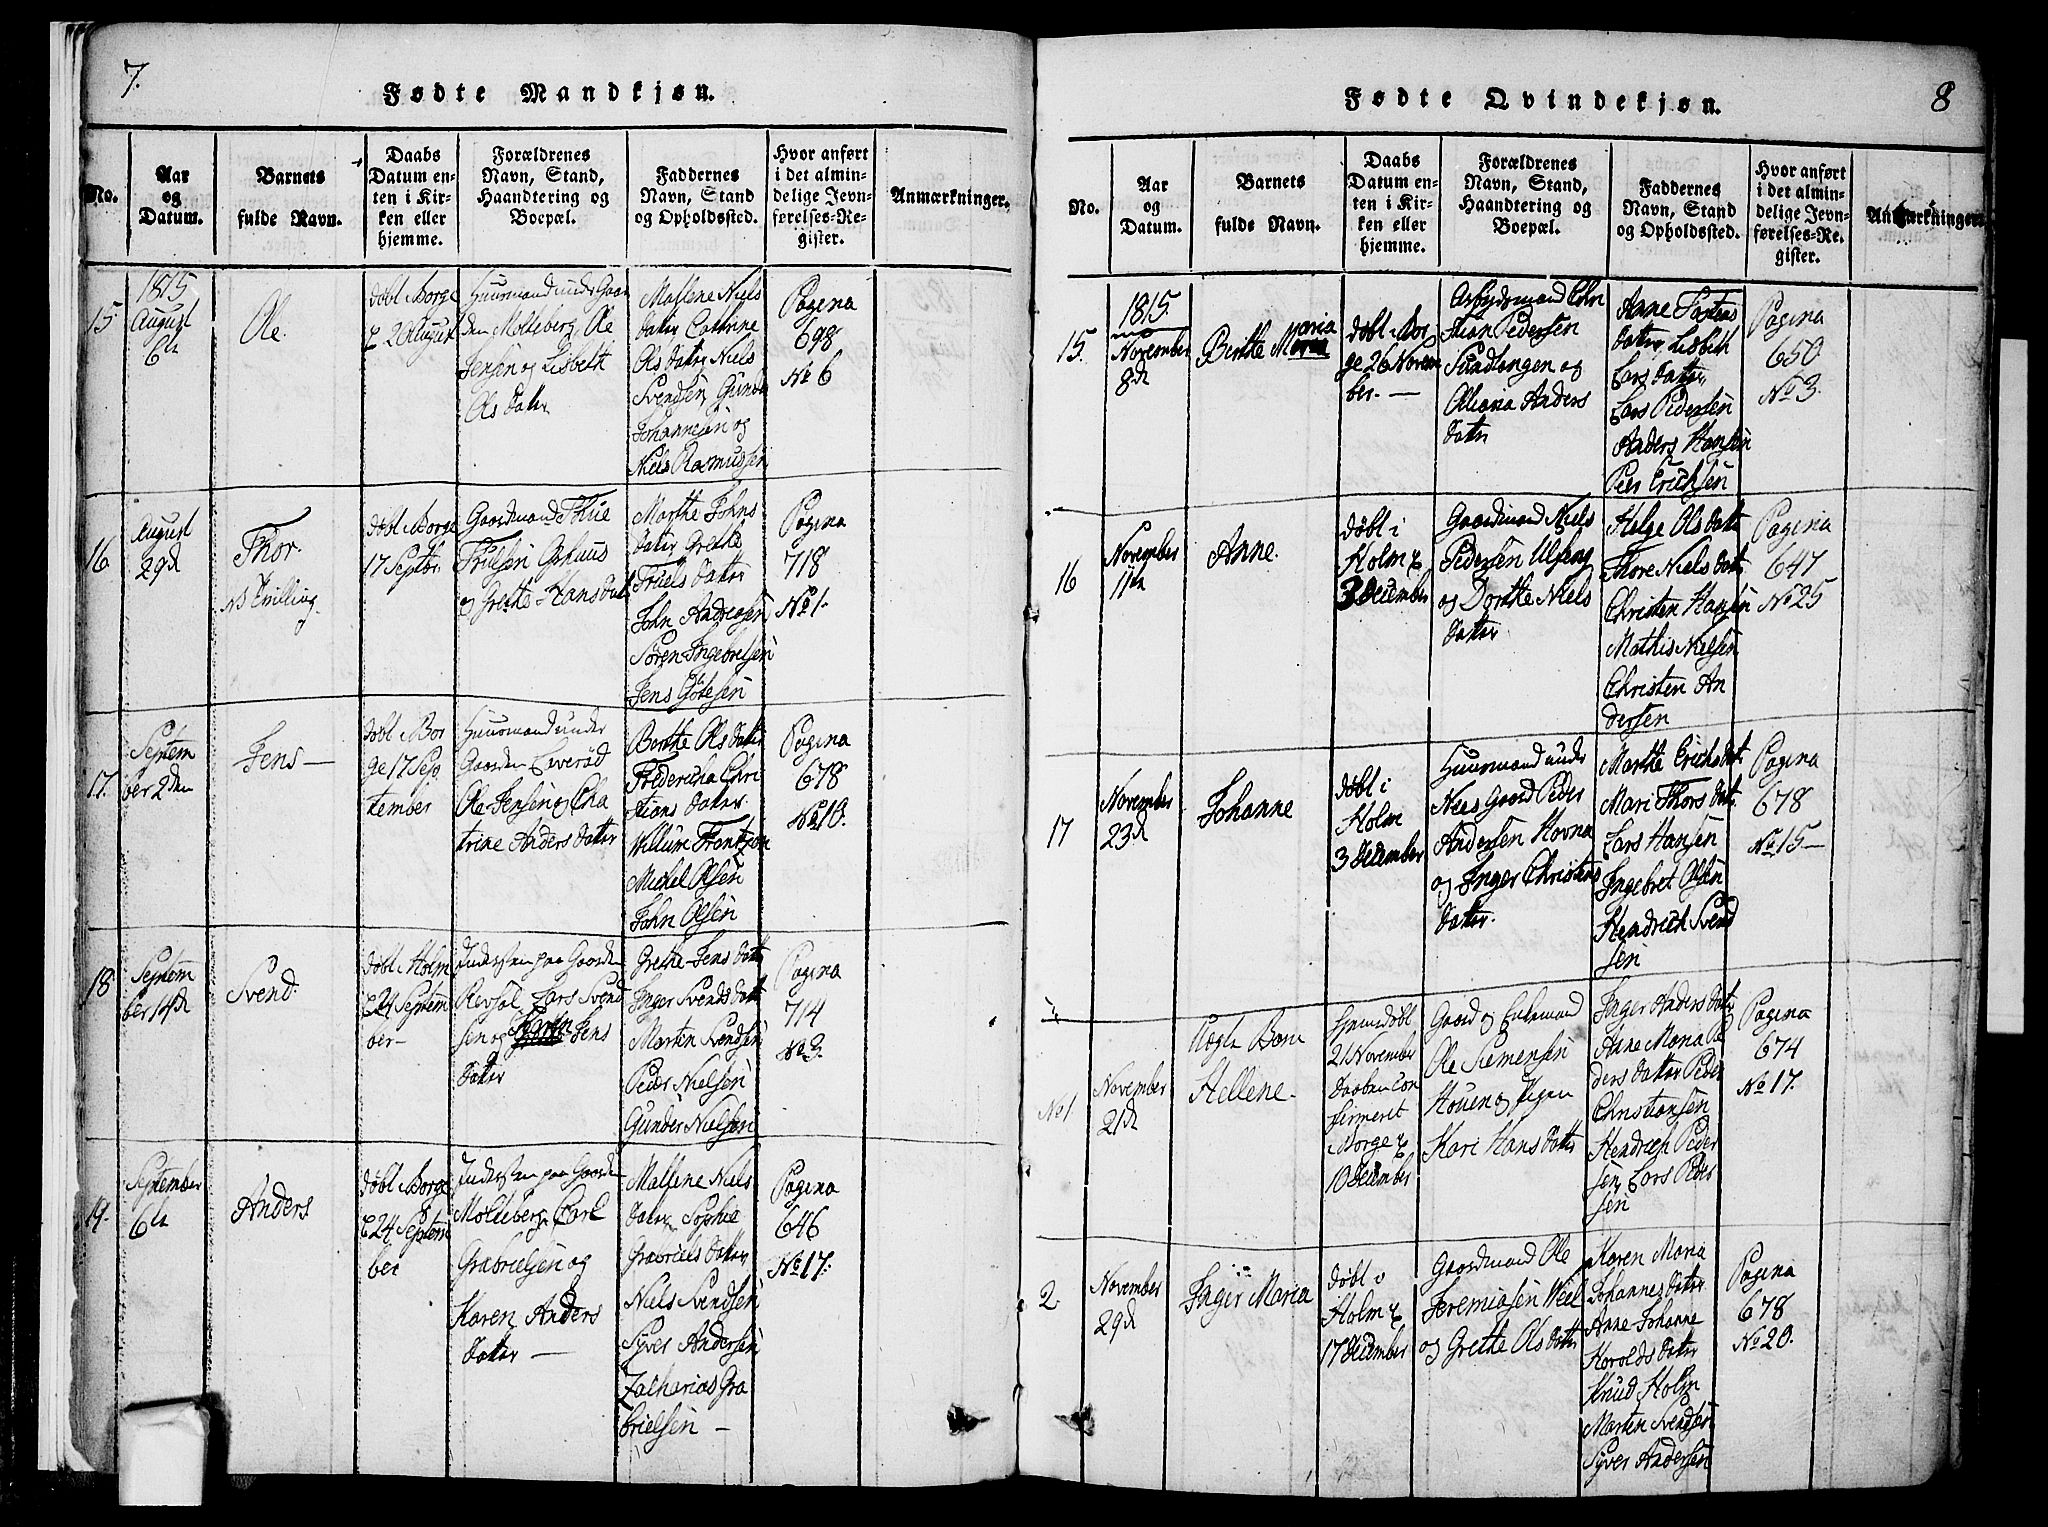 7.
Fødte Mandkjøn.
No.
Aar
og
Datum.
Barnets
fulde Navn.
Daabs
Datum en-
ten i Kir-
ken eller
hjemme.
Forældrenes
Navn, Stand,
Haandtering og
Boepæl.
Faddernes
Navn, Stand
og Opholdssted.
Hvor anført
i det almin-
delige Jevn-
førelses-Re-
gister.
Anmærkninger.
15
1815
August
6te
Ole.
døbt i Borge
20 August
Huusmand under Gaar
den Molteberg, Ole
Jensen og Lisbeth
Ols datter
Mallene Niels
datter Cathrine
Ols datter Niels
Svendsen, Gunder
Johannesen og
Niels Rasmussen
Pagina
698
No 6
16
August
29d
Thor.
NB Tvilling.
døbt i Borge
17 Septbr
Gaardmand Thue
Truelsen
og Grethe Hans dat
Marthe Johns
datter Grethe
Truels datter
John Andreasen
Søren Ingebretsen
Jens
Pagina
718
No 1.
17.
Septem
ber 2den
Jens —
døbt i Bor
ge 17 Sep
tember
Huusmand under
Gaarden Evverød
Ole Jensen og Cha
trine Anders datter
Berthe Ols datter
Fredericha Chri
stians datter
Willum Frantzen
Michel Olsen
John Olsen
Pagina
678
No 10.
18
Septem
ber 14d
Svend.
døbt i Holm
24 Septem
ber—
Inderst paa Gaarden
Revsol Lars Svend
sen og Karen Jens
datter
Grethe Jens datt
Inger Svends datt
Marten Svendsen
Peder Nielsen
Gunder Nielsen
Pagina
714
No 3.
19.
September
6te
Anders
døbt i Borge
24 Septem
ber
Inderst paa Gaarden
Molteberg, Carl
Grabrielsen og
Karen Anders
datter —
Mallene Niels
datter Sophie
Grabriels datter
Niels Svendsen
Syver Andersen
Zacharias Gra
brielsen —
Pagina
646
No 17.
Fødte Qvindekjøn.
8
No.
Aar
og
Datum.
Barnets
fulde Navn.
Daabs
Datum en-
ten i Kir-
ken eller
hjemme.
Forældrenes
Navn, Stand,
Haandtering og
Boepæl.
Faddernes
Navn, Stand
og Opholdssted.
Hvor anført
i det almin-
delige Jevn-
førelses-Re-
gister.
Anmærkninger.
15.
1815.
November
8d
Berthe Maria
døbt i Bor
ge 26 Novem
ber. —
Arbejdsmand Chri
stian Pedersen
Sundløngen og
Oliana Anders
datter
Anne Tostens
datter Lisbeth
Lars datter,
Lars Pedersen
Anders Hansen
Peer Erichsen
Pagina
650
No 3.
16
November
11te
Anne.
døbt i
Holm
3 December
Gaardmand Niels
Pedersen Ulfeng
og Dorthe Niels
datter
Helge Ols datt
Thore Niels datt
Christen Hansen
Mathis Nielsen
Christen An
dersen
Pagina
647
No 25
17
November
23d
Johanne
døbt i
Holm
3 December
Huusmand under
Nes Gaard Peder
Andersen Hovna
og Inger Christens
datter.
Marthe Erichs dat
Mari Thors dat
Lars Hansen
Ingebret Olsen
Hendrich Svend
sen
Pagina
678
No 15—
No 1
November
21d
Uægte Barn
Hellene.
Hjemedøbt
21 November
Daaben con
firmeret
Borge
10 December
Gaard og Enkemand
Ole Siemensen
Houen og Pigen
Kari Hans datter
Inger Anders datt
Anne Maria Pe
ders datter Peder
Christiansen
Hendrich Peder
sen, Lars Peder
sen
Pagina
674
No 17.
2.
November
29d
Inger Maria
døbt i
Holm
17 December
Gaardmand Ole
Jeremiasen Weel
og Grethe Ols datter
Karen Maria
Johannes datter
Anne Johanne
Harolds datter
Knud Holm
Marten Svendsen
Syver Andersen
Pagina
678
No 20.